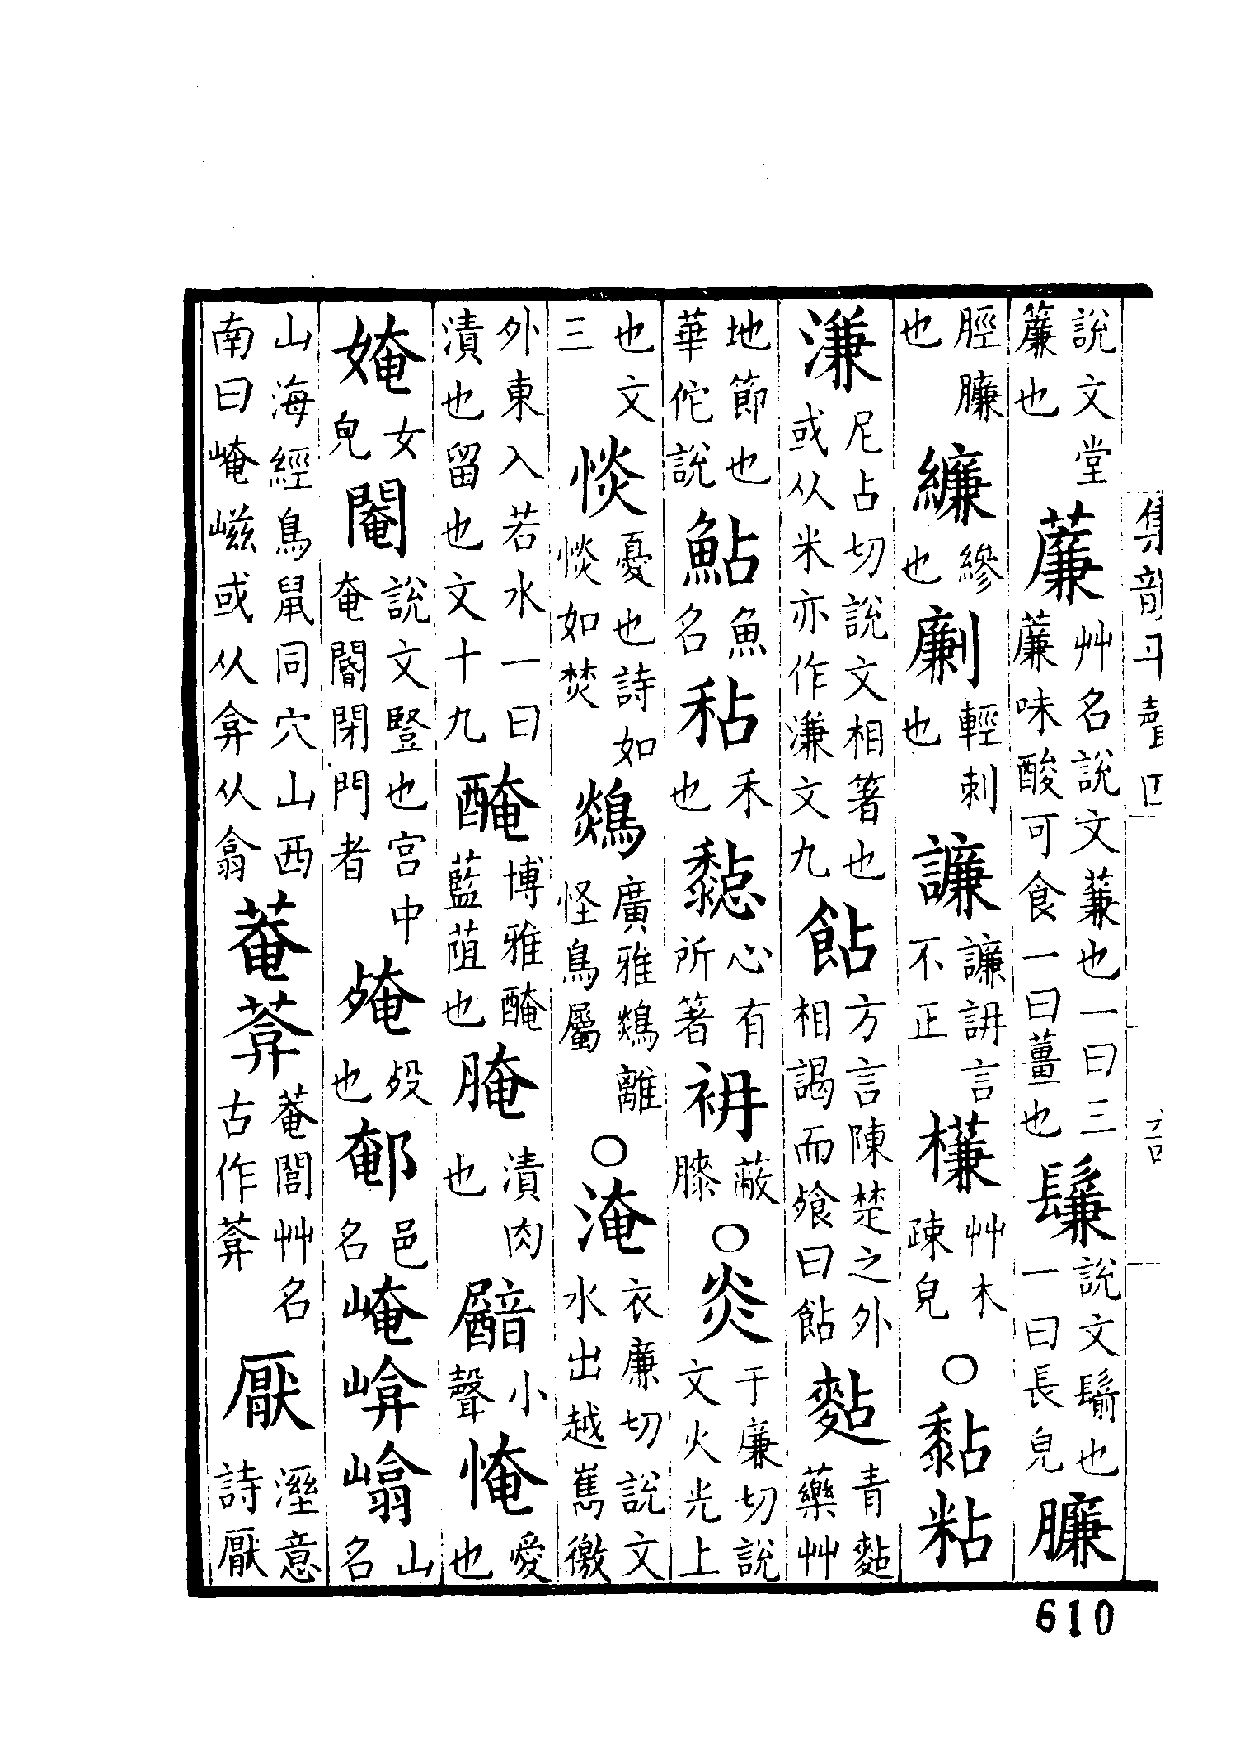 集韻平聲四
說文堂簾也 薕艸名說文蒹也一曰三薕味酸可食一曰薑也 鬑說文鬋也一曰長皃 臁
脛臁也 縑縿也 劆輕刺也 譧譧詽言不正 槏艸木疎皃 ○黏粘
溓尼占切說文相箸也或从米亦作溓文九 飴方言陳楚之外相謁而飱曰飴 䵑青䵑藥艸
地節也華佗說 鮎魚名 秥禾也 㦗心有所著 袡蔽膝 ○炎于廉切說文火光上
也文三 惔憂也詩如惔如焚 鴹廣雅鴹離怪鳥屬 ○淹衣廉切說文水出越嶲徼
外東入若水一曰漬也留也文十九 醃博雅醃藍䔃也 腌漬肉也 㱃小聲 㤿愛也
媕女皃 閹說文豎也宮中奄閽閉門者 殗歿也 䣍邑名 崦㟇嵡山名
山海經鳥鼠同穴山西南曰崦嵫或从弇从翕 菴葊菴䕡艸名古作葊 厭溼意詩厭
610